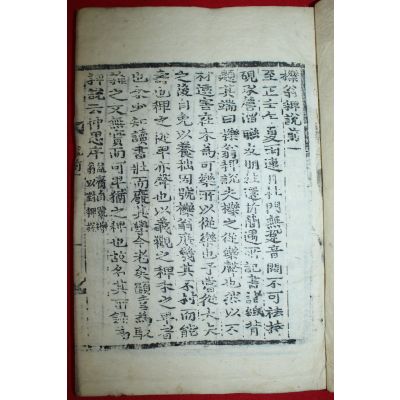 櫟翁稗說前
至正壬午夏雨連月杜門無跫音悶不可袪持
硯承簷溜聯友朋往還折簡遇所記書諸紙背
題其端曰櫟翁稗說夫櫟之從樂聲也然以不
材遠害在木為可樂所以從樂也予嘗從大夫
之後自免以養拙因號櫟翁庶幾其不材而能
壽也稗之從卑亦聲也以義觀之稗禾之卑者
也余少知讀書壯而廢其學今老矣顧喜為駁
雜之文無實而可卑猶之稗也故名其所錄為
稗說云仲思序